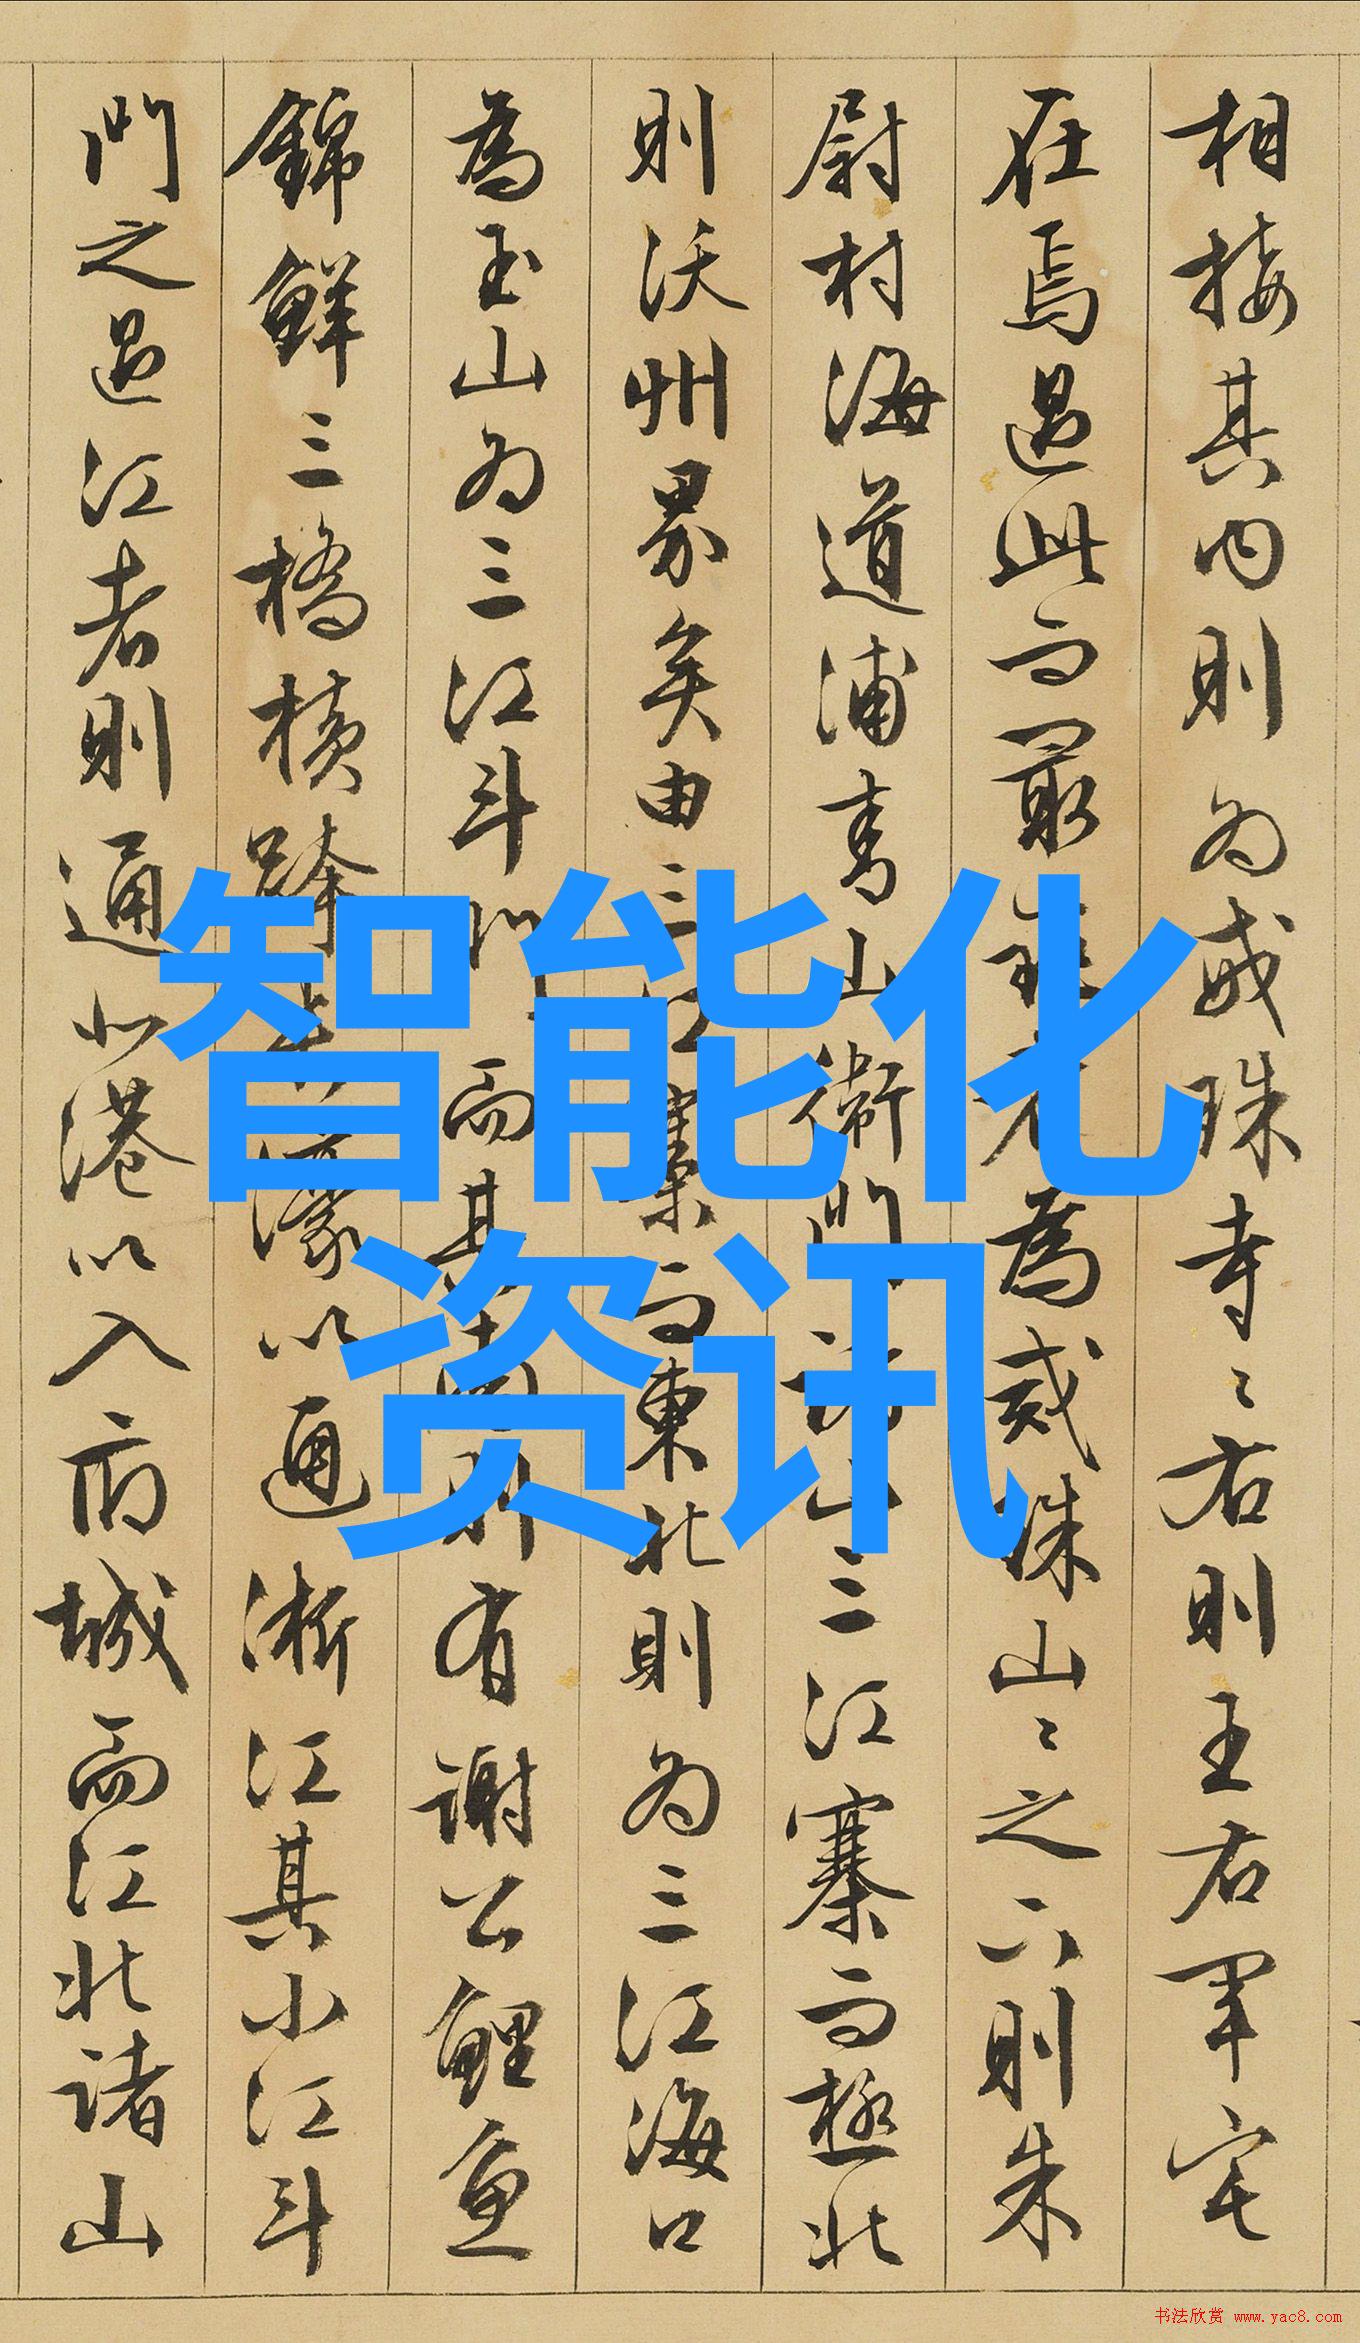 相接其内則为戒珠寺〻右則王右軍宅
在焉過此而最
為戒珠山〻之下則朱
尉村海道浦
山衛
三江寨而極北
則沃州界矣由三江寨而東北則为三江海口
為玉山为三江斗門而其南則有謝公鯉魚
錦鱗三橋横跨
以通浙江其小江斗
門之過江者則通小港以入府城而江北諸山
智能化
资讯
书法欣赏 www.yac8.com